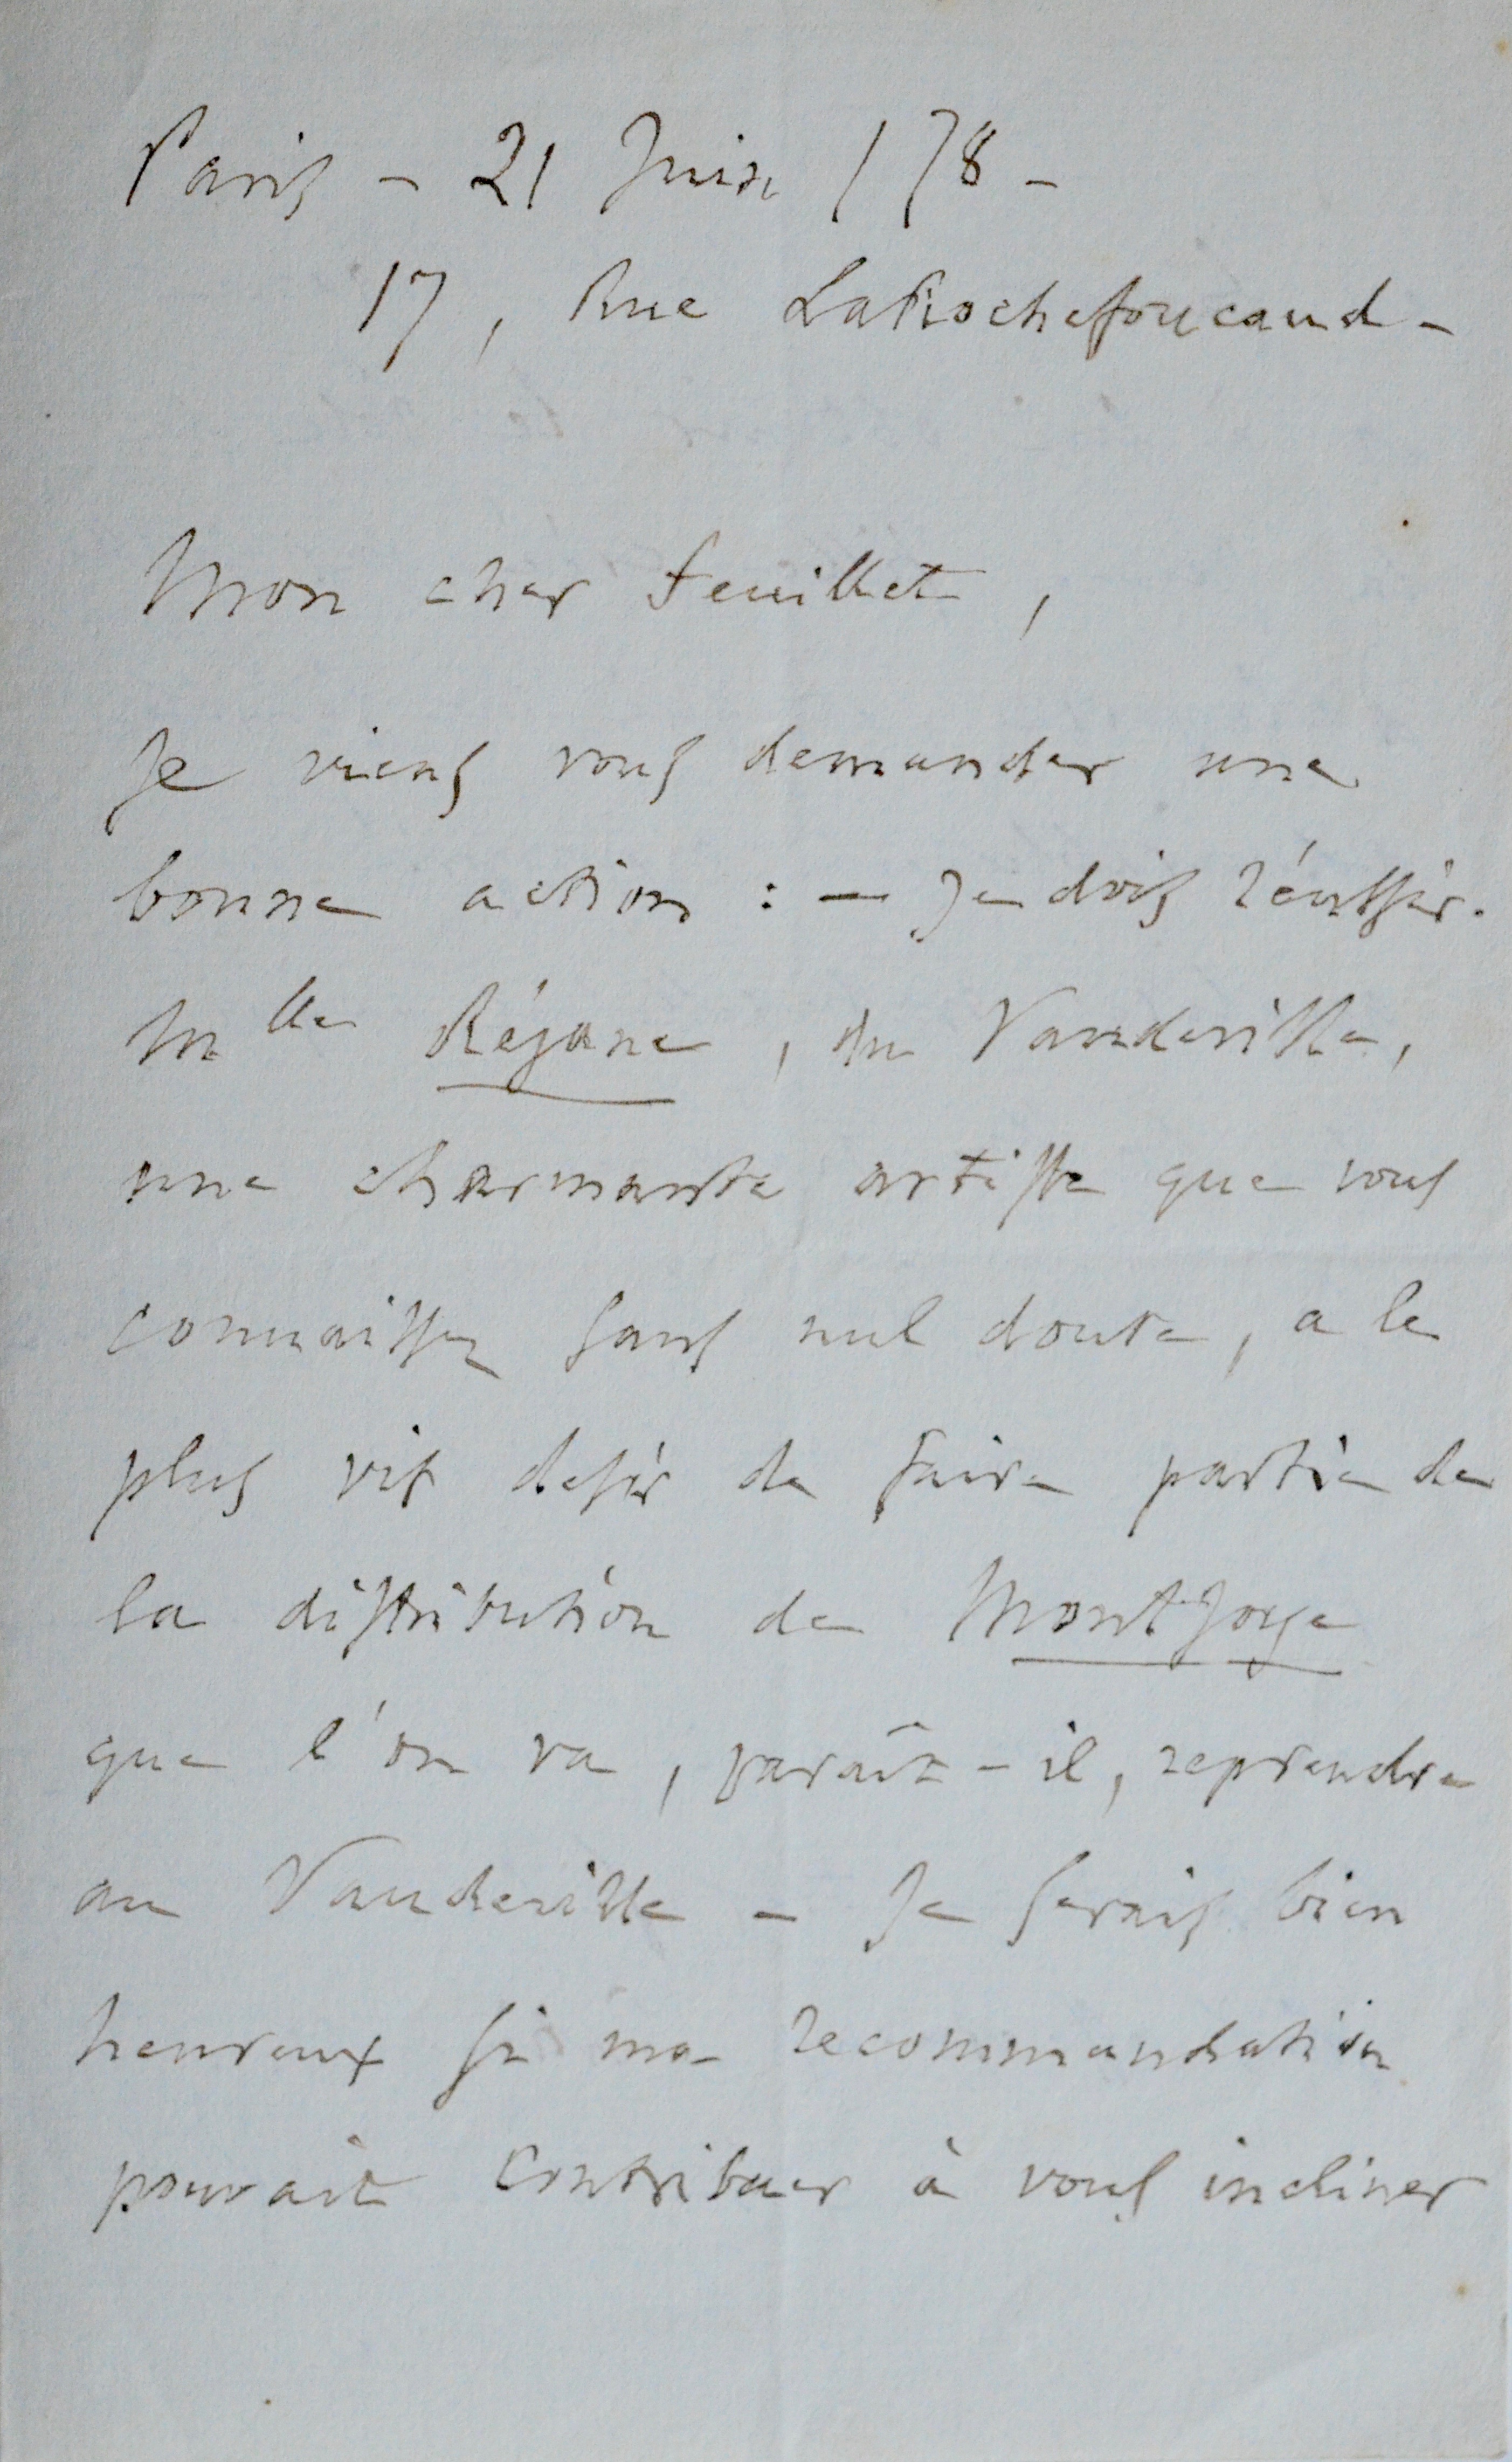 Paris - 21 Juin / 78 -
17, Rue LaRochefoucaud -
Mon cher Feuillet,
Je viens vous demander une
bonne action : — Je dois réussir.
Mlle Réjane, du Vaudeville,
une charmante artiste que vous
connaissez sans nul doute, a le
plus vif desir de faire partie de
la distribution de MontJoye
que l'on va, paraît-il, reprendre
au Vaudeville - Je serais bien
heureux si ma recommandation
pouvait contribuer à vous incliner